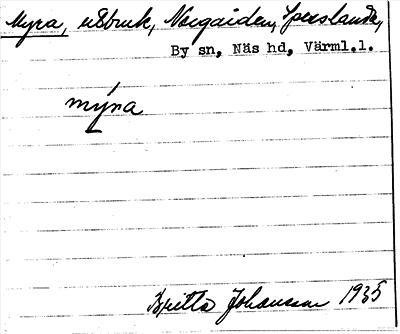 Myra, utbruk, Norgården, Speslanda,
By sn, Näs hd, Värml.l.
mýra
Britta Johansson 1935